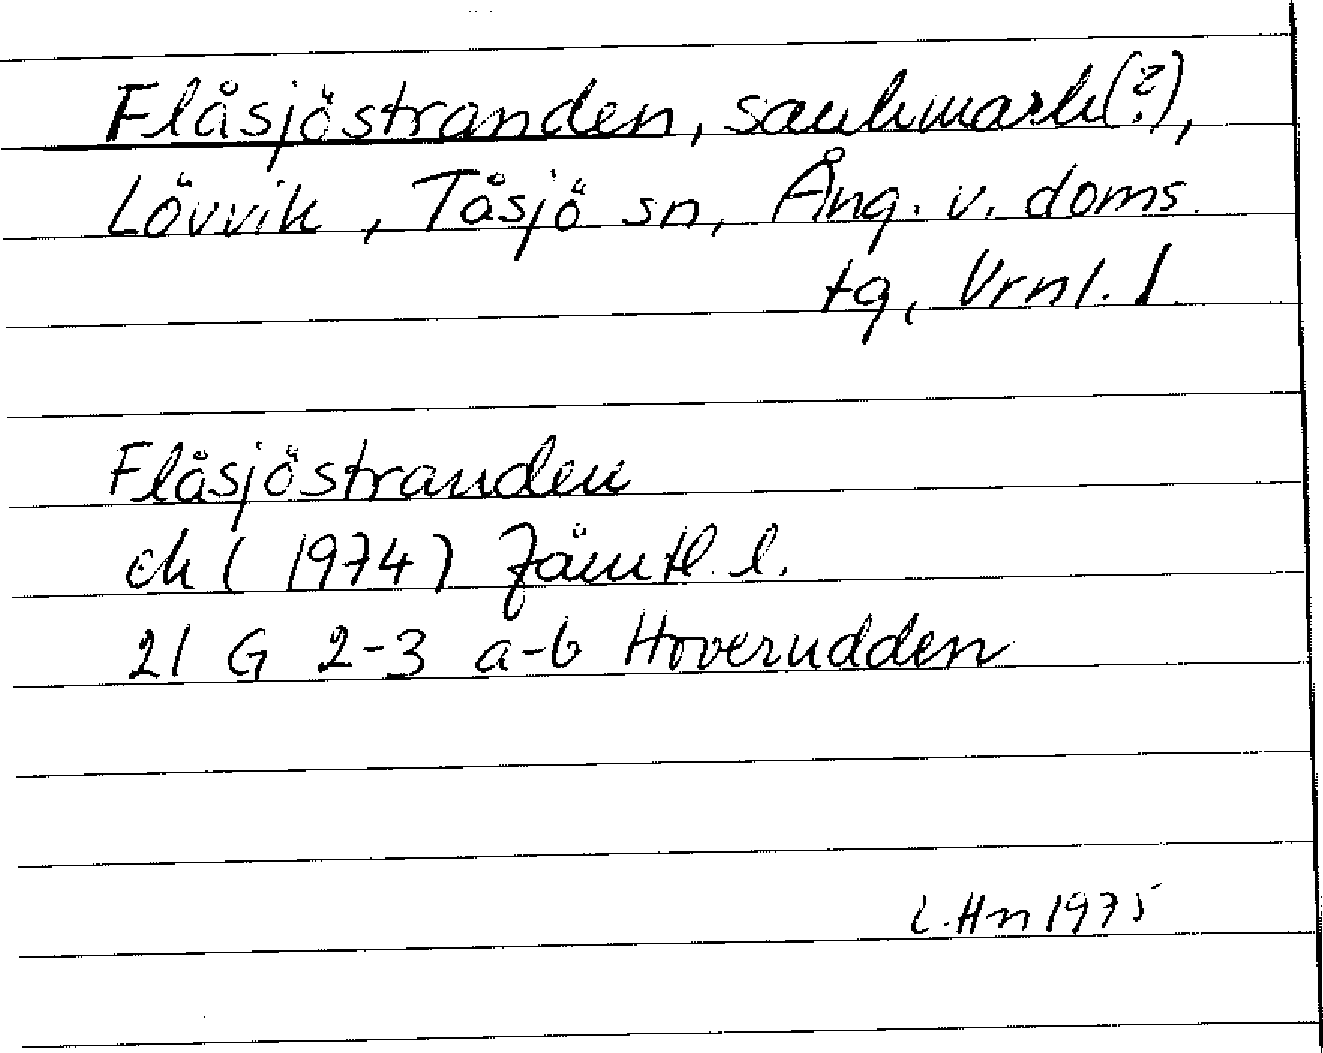 Flåsjöstranden, sankmark(?),
Lövvik, Tåsjö sn, Ång. v. doms.
tg, Vrnl. l.
Flåsjöstranden
ek (1974) Jämtl. l.
21 G 2-3 a-b Hoverudden
L. Hn 1975